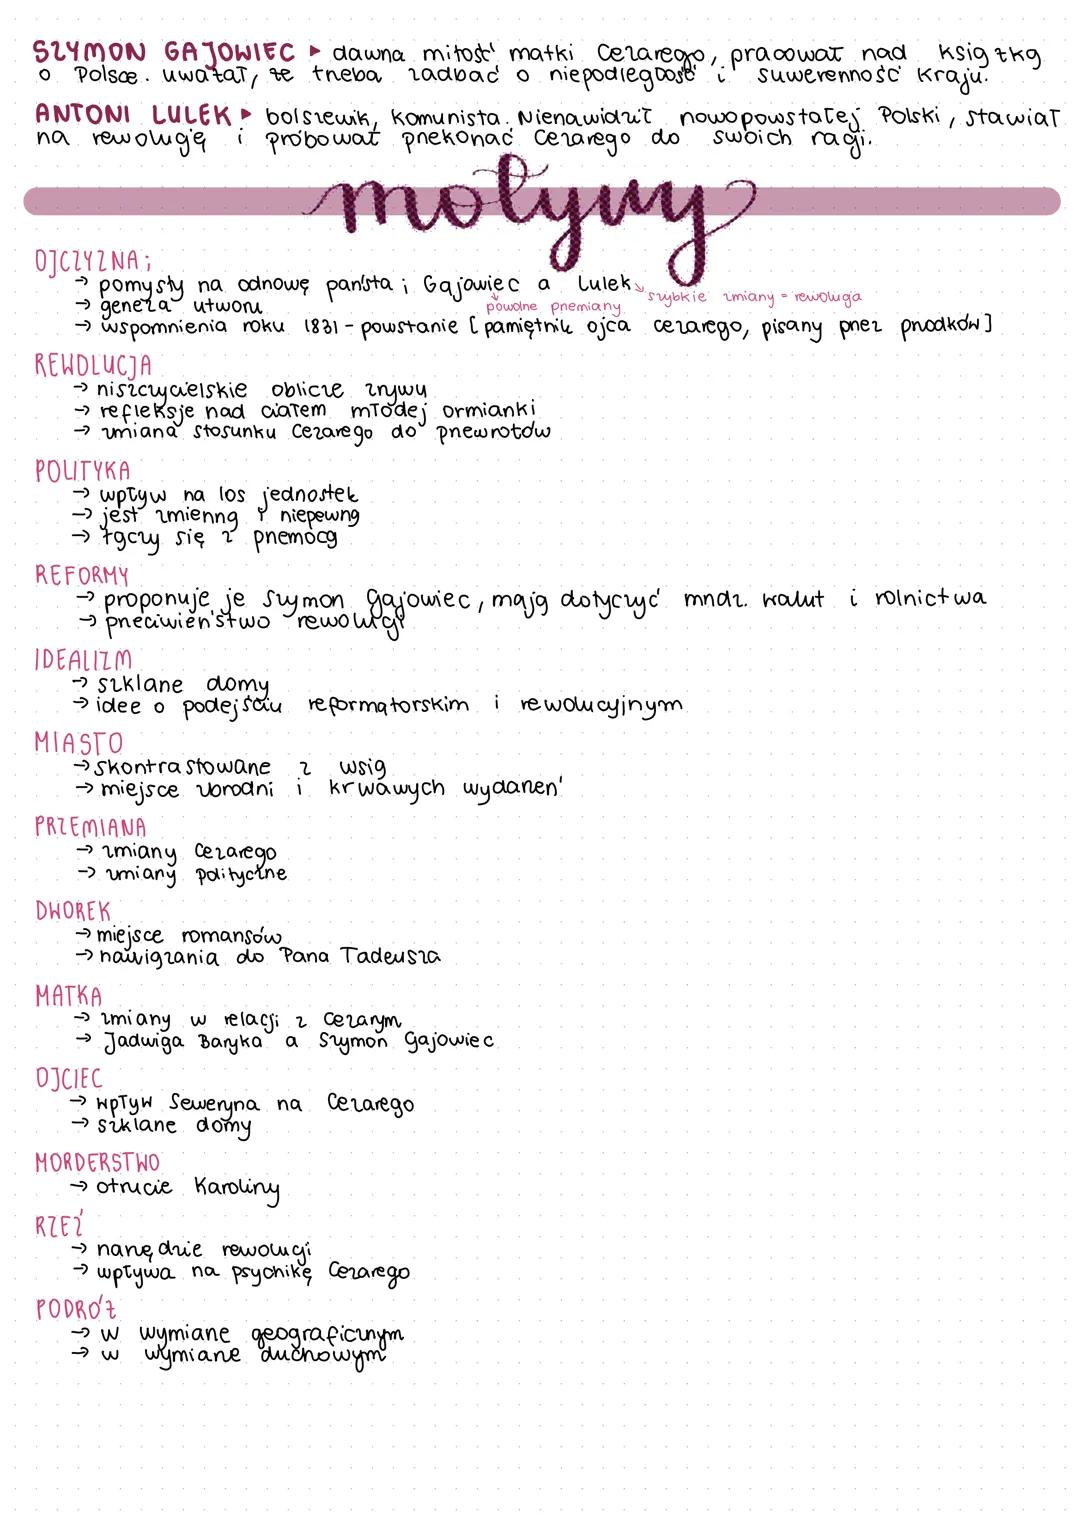 SZYMON GAJOWIEC ▸ dawna miłość matki Cezarego, pracował nad książką
o Polsce. uważał, że trzeba zadbać o niepodległość i suwerenność kraju.
ANTONI LULEK ▸ bolszewik, komunista. Nienawidził nowopowstałej Polski, stawiał
na rewolucję i próbował przekonać Cezarego do swoich racji.
motywy
OJCZYZNA;
→ pomysły na odnowę państa; Gajowiec a Lulek
powolne przemiany
szybkie zmiany = rewolucja
→ geneza utworu
→ wspomnienia roku 1831 - powstanie [pamiętnik ojca cezarego, pisany przez przodków]
REWOLUCJA
→ niszczycielskie oblicze zrywu
→ refleksje nad ciałem młodej ormianki
→ zmiana stosunku Cezarego do przewrotów
POLITYKA
→ wpływ na los jednostek
→ jest zmienną i niepewną
→ łączy się z przemocą
REFORMY
→ proponuje je Szymon Gajowiec, mają dotyczyć mndz. walut i rolnictwa
→ przeciwieństwo rewolucji
IDEALIZM
→ szklane domy
→ idee o podejściu reformatorskim i rewolucyjnym
MIASTO
→ skontrastowane z wsią
→ miejsce zbrodni i krwawych wydarzeń
PRZEMIANA
→ zmiany Cezarego
→ zmiany polityczne
DWOREK
→ miejsce romansów
→ nawiązania do Pana Tadeusza
MATKA
→ zmiany w relacji z Cezarym
→ Jadwiga Baryka a Szymon Gajowiec
OJCIEC
→ wpływ Seweryna na Cezarego
→ szklane domy
MORDERSTWO
→ otrucie Karoliny
RZEŹ
→ narzędzie rewolucji
→ wpływa na psychikę Cezarego
PODRÓŻ
→ w wymiarze geograficznym
→ w wymiarze duchowym